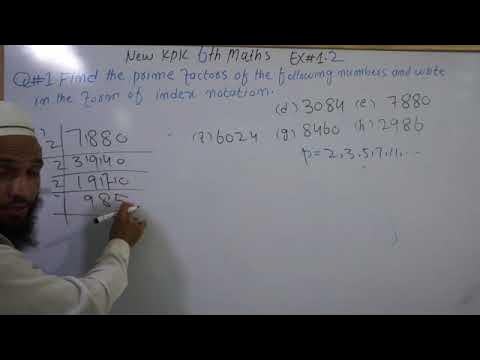 New KPK 6th Maths Ex#1.2
Q#1 Find the prime factors of the following numbers and write
in the form of index notation.
(d) 3084 (e) 7880
(f) 6024 (g) 8460 (h) 2986
p=2,3,5,7,11,...
2 7880
2 3940
2 1970
985